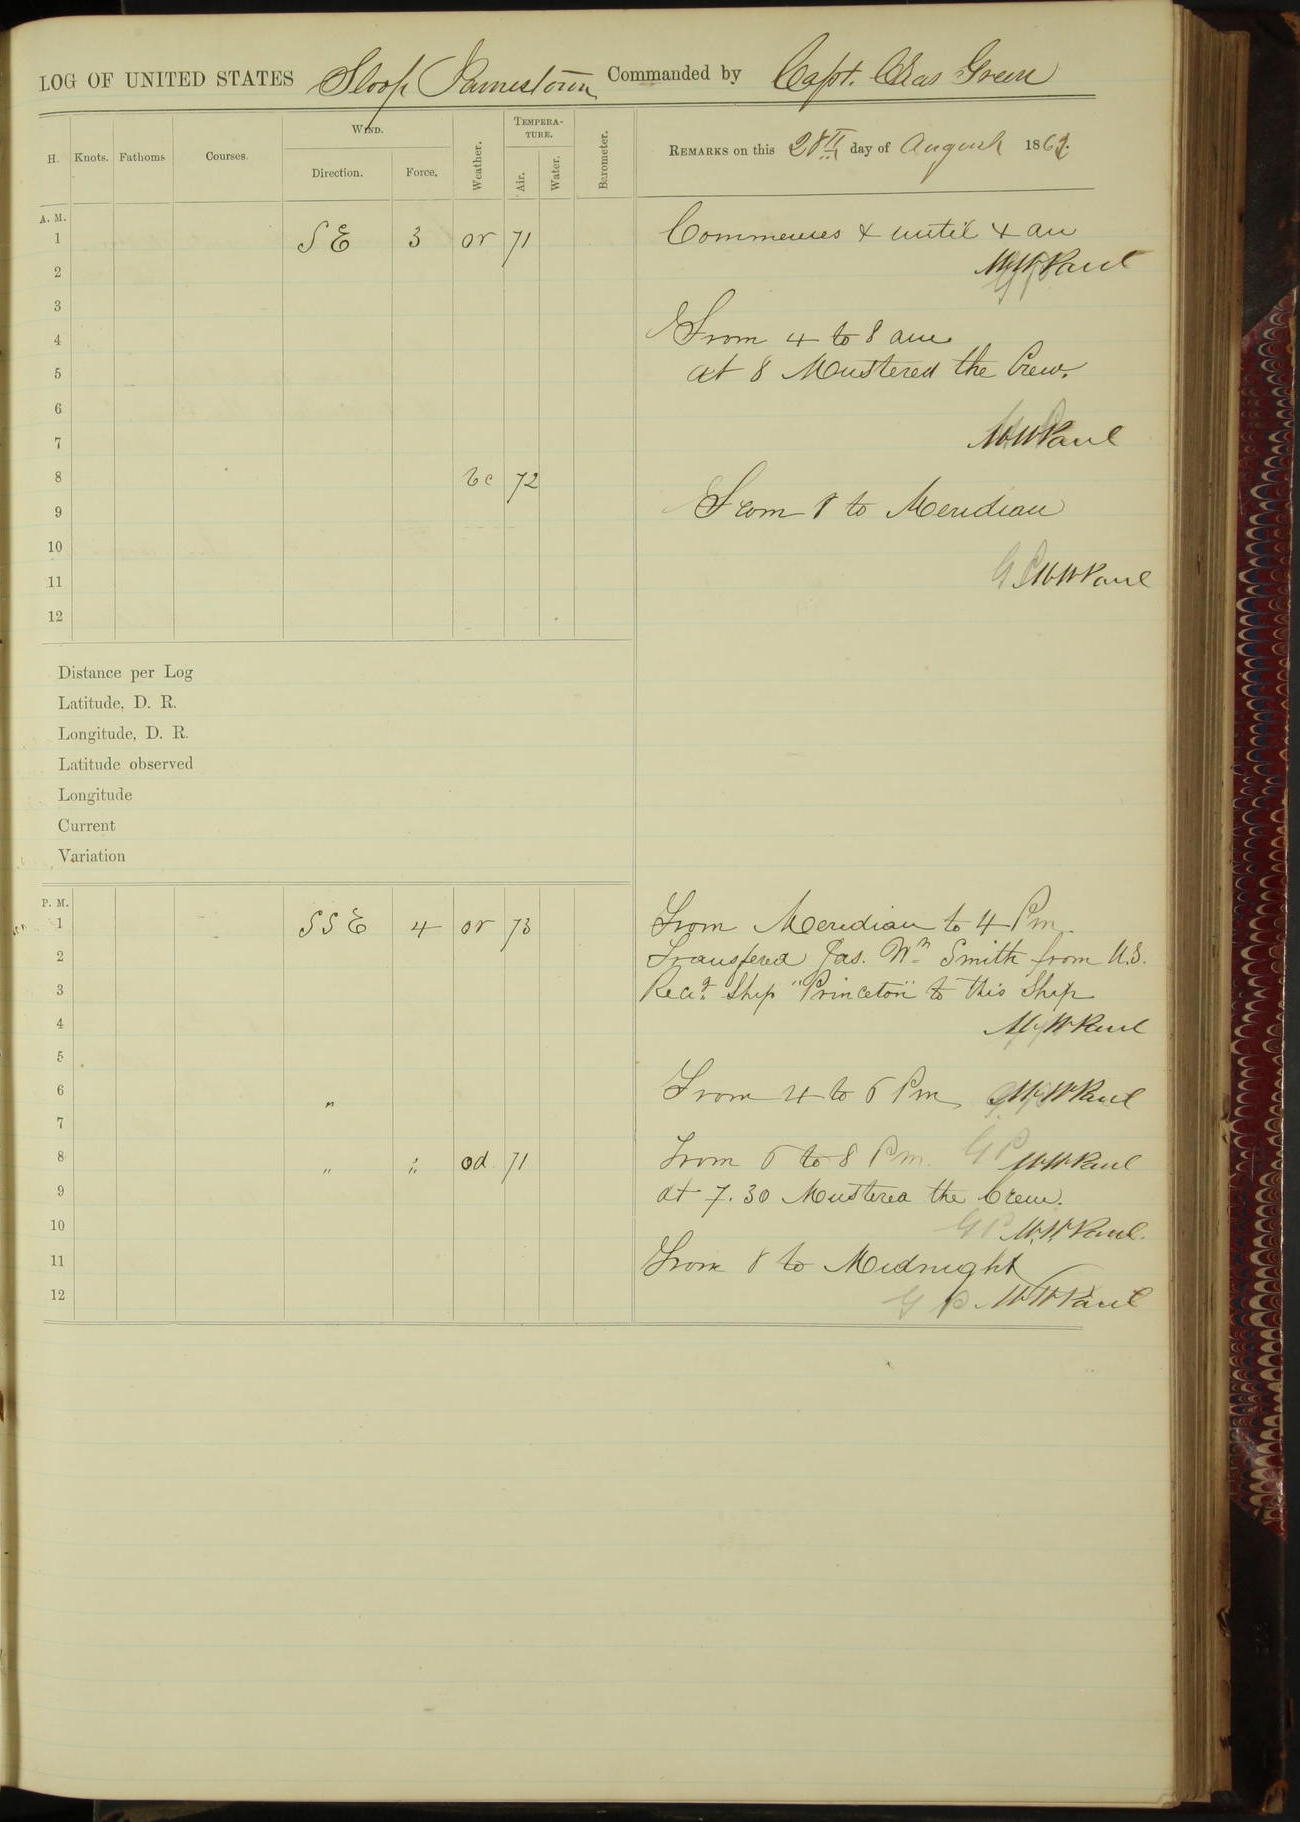 LOG OF UNITED STATES Sloop Jamestown Commanded by Capt. Chas Green
H. Knots. Fathoms Courses. WIND. Direction. Force. Weather. TEMPERATURE. Air. Water. Barometer. REMARKS on this 28th day of August 1862.
A. M.
1 S E 3 or 71 Commences & until 4 am
2 M W Paul
3
4 From 4 to 8 am
5 at 8 Mustered the Crew.
6
7 M W Paul
8 bc 72
9 From 8 to Meridian
10
11 G P M W Paul
12
Distance per Log
Latitude, D. R.
Longitude, D. R.
Latitude observed
Longitude
Current
Variation
P. M.
1 S S E 4 or 73 From Meridian to 4 Pm.
2 Transfered Jas. Wm Smith from U.S.
3 Recg Ship "Princeton" to this Ship
4 M W Paul
5
6 " From 4 to 6 Pm M W Paul
7
8 " " od 71 From 6 to 8 Pm. G P M W Paul
9 at 7.30 Mustered the Crew.
10 G P M. W. Paul.
11 From 8 to Midnight
12 G P M W Paul